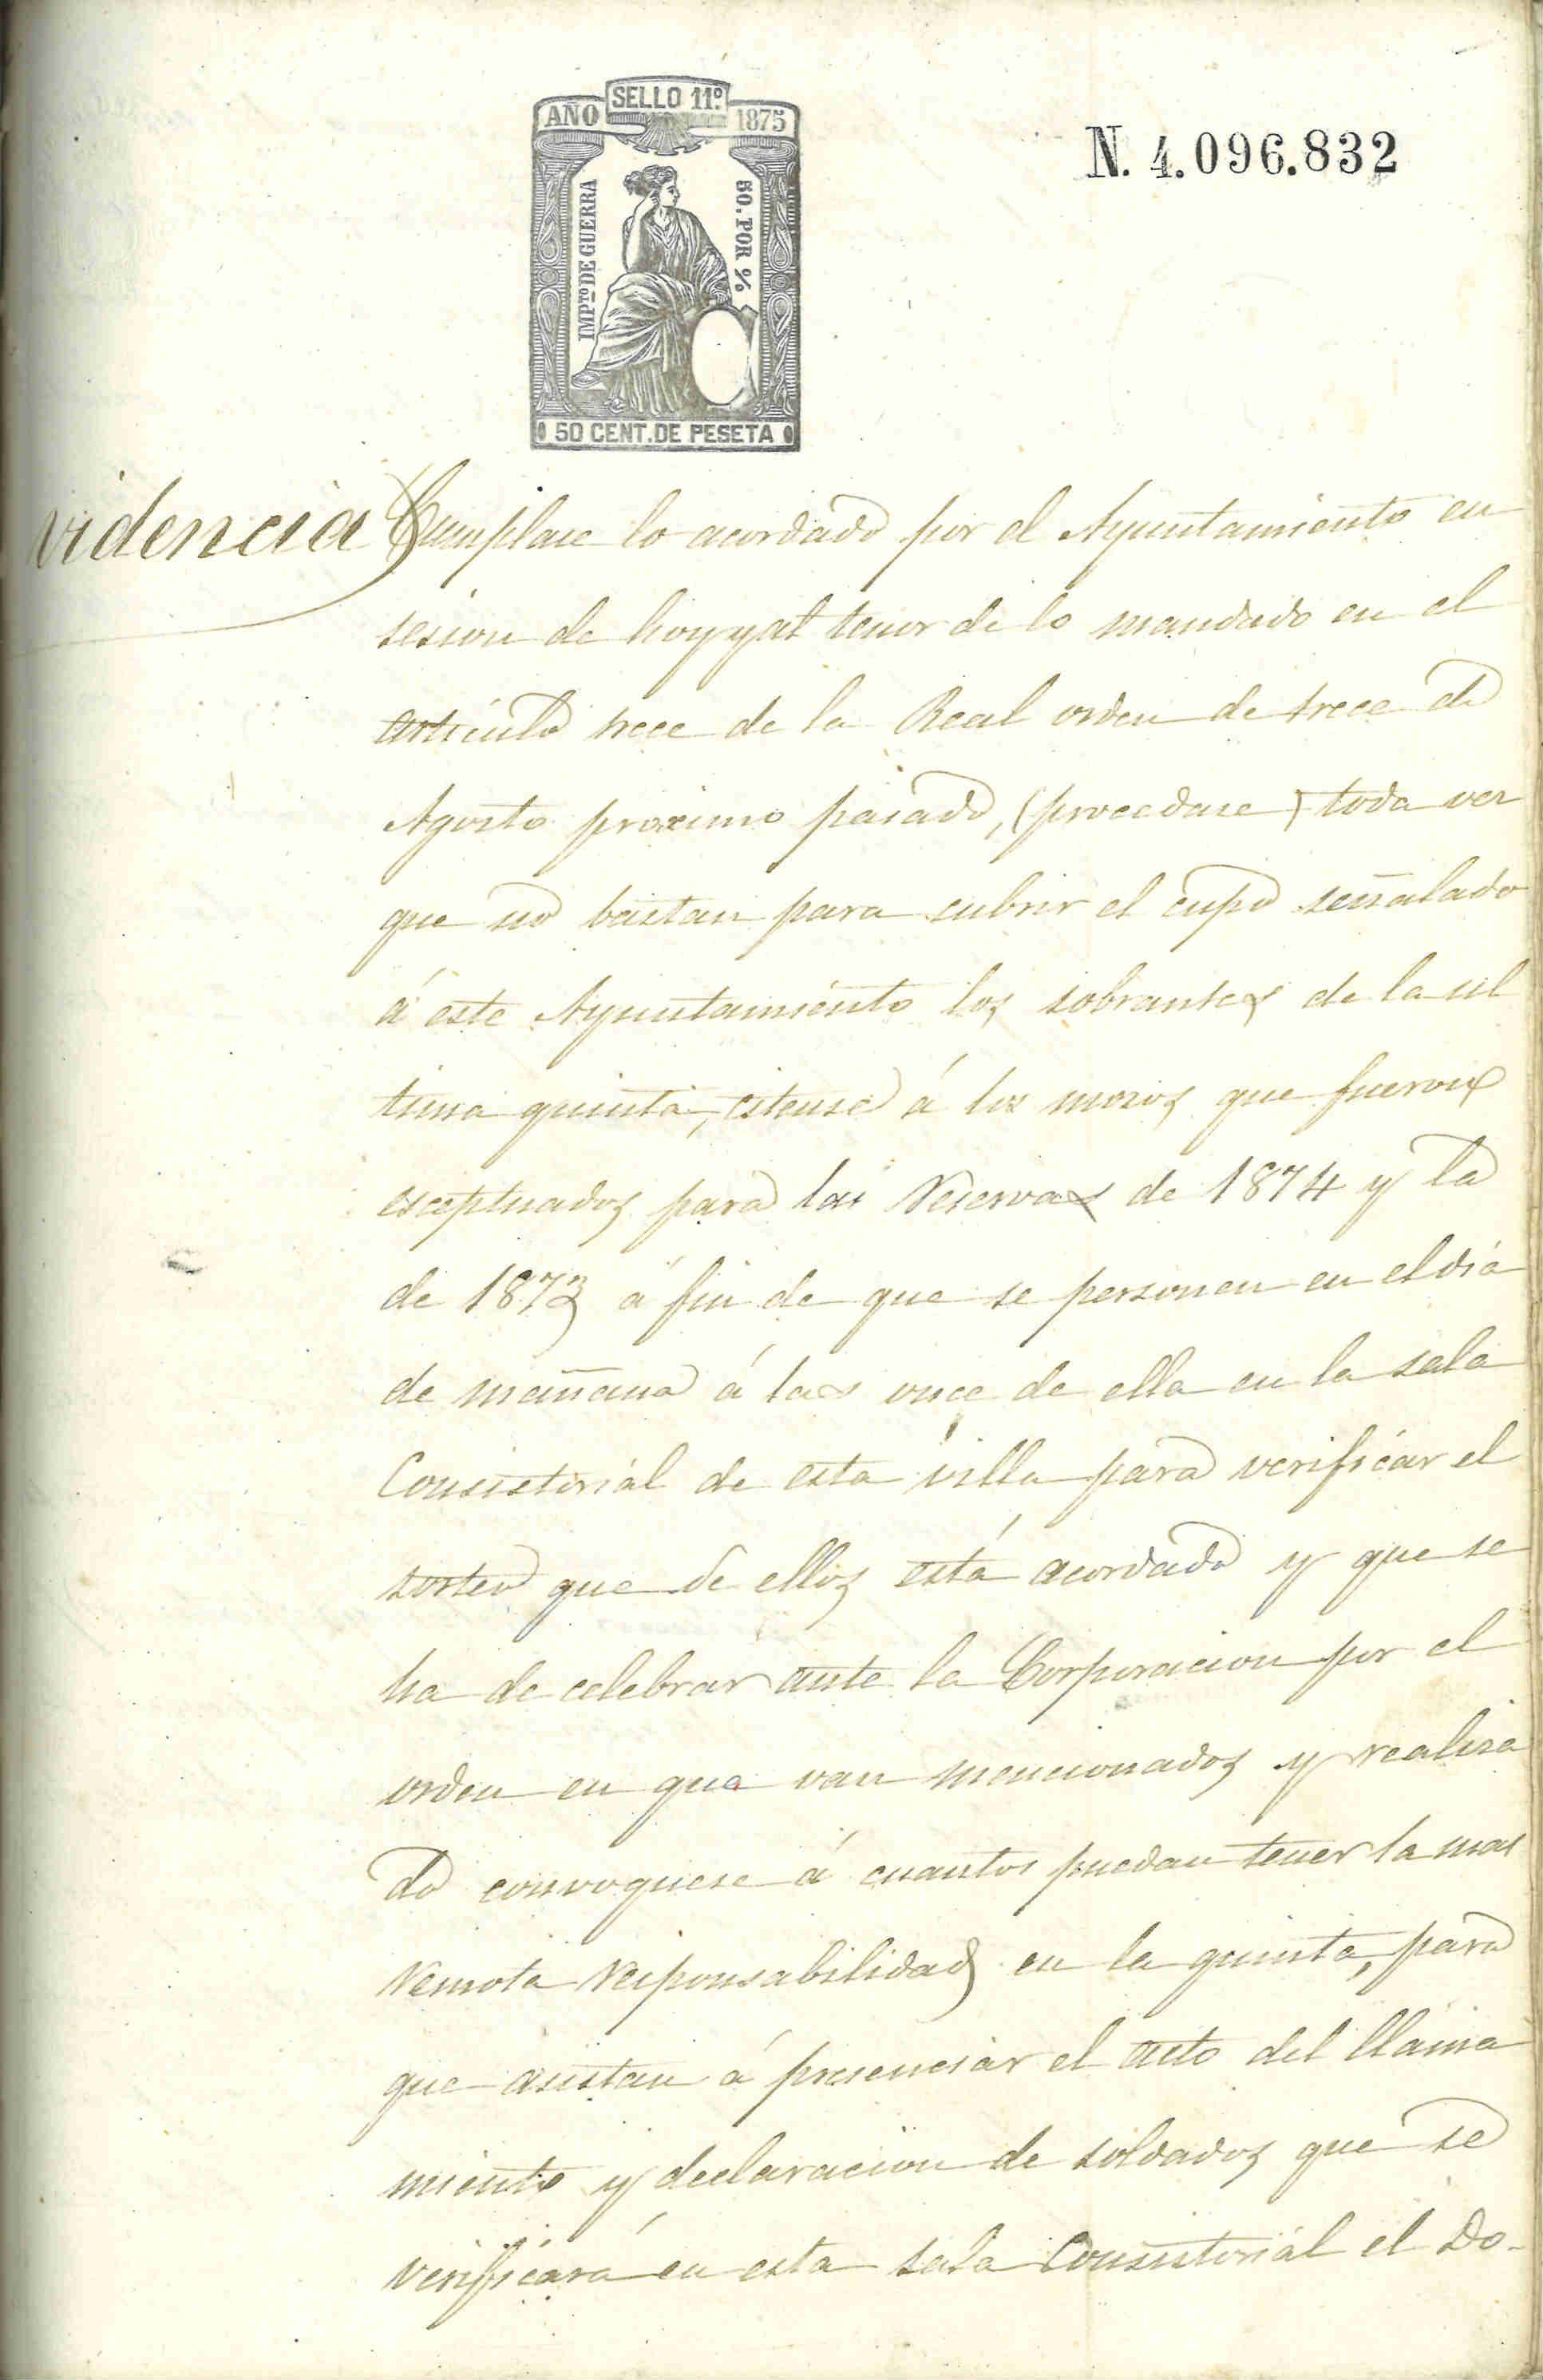 AÑO SELLO 11º 1875
IMPTO DE GUERRA
50. POR %
50 CENT. DE PESETA
N. 4.096.832
videncia
Cumplase lo acordado por el Ayuntamiento en
sesion de hoy y al tenor de lo mandado en el
articulo trece de la Real orden de trece de
Agosto proximo pasado, (procedase) toda vez
que no bastan para cubrir el cupo señalado
á este Ayuntamiento los sobrantes de la ul
tima quinta, citense á los mozos que fueron
esceptuados para las Reservas de 1874 y la
de 1873 á fin de que se personen en el dia
de mañana á las once de ella en la sala
Consistorial de esta villa para verificar el
sorteo que de ellos está acordado y que se
ha de celebrar ante la Corporacion por el
orden en que van mencionados y realiza
do convoquese á cuantos puedan tener la mas
remota responsabilidad en la quinta, para
que asistan á presenciar el acto del llama
miento y declaracion de soldados que se
verificará en esta sala Consistorial el Do-